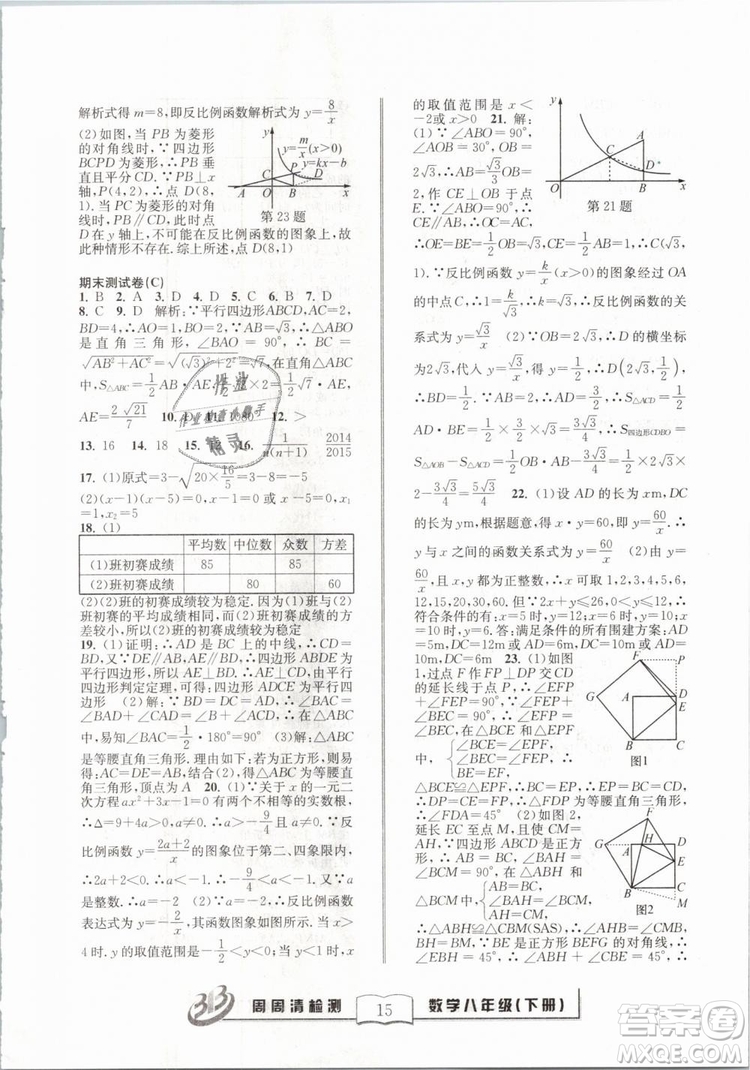 解析式得 m=8,即反比例函数解析式为 y=8/x
(2)如图,当 PB 为菱形
的对角线时,∵四边形
BCPD 为菱形,∴PB 垂
直且平分 CD.∵PB⊥x
轴,P(4,2),∴点 D(8,
1).当 PC 为菱形的对角
线时,PB∥CD,此时点
D 在 y 轴上,不可能在反比例函数的图象上,故
此种情形不存在.综上所述,点 D(8,1)
y=m/x
y=kx-b
第 23 题
期末测试卷(C)
1. B 2. A 3. D 4. D 5. C 6. B 7. D
8. C 9. D 解析:∵平行四边形ABCD,AC=2,
BD=4,∴AO=1,BO=2.∵AB=√3,∴△ABO
是直角三角形,∴∠BAO=90°,∴BC=
√(AB²+AC²)=√((√3)²+2²)=√7,∴在直角△ABC
中,S△ABC=1/2 AB·AC=1/2×√3×2=1/2×√7·AE,
AE=2√21/7 10. D 11. 1080 12. >
13. 16 14. 18 16. 1/(n(n+1)) 2014/2015
17. (1)原式=3-√(20×16/5)=3-8=-5
(2)(x-1)(x-5)=0,x-1=0或x-5=0,x₁
=1,x₂=5
18. (1)
平均数 中位数 众数 方差
(1)班初赛成绩 85 85
(2)班初赛成绩 80 60
(2)(2)班的初赛成绩较为稳定.因为(1)班与(2)
班初赛的平均成绩相同,而(2)班初赛成绩的方
差较小,所以(2)班的初赛成绩较为稳定
19. (1)证明:∵AD是BC上的中线,∴CD=
BD.∵AE∥BC,DE∥AB,∴四边形ABDE为平
行四边形,∴AE=BD,∴AE∥CD.根据平行四
边形判定定理,可得:四边形ADCE为平行四边
形 (2)解:∵BD=DC=AD,∴∠ABD=
∠BAD,∠ACD=∠DAC,又∵∠B=∠BAC,
易知∠BAC=1/2·180°=90° (3)解:△ABC
是等腰直角三角形.理由如下:若为正方形,则易
得:AD⊥DC,且AD=BD=DC,∴△ADC和
△ADB是等腰直角三角形,∴∠B=∠ACB=
45°,∴AB=AC,结合(2),得△ABC是等腰直角三
角形,顶点为A 20. (1)∵关于x的一元二
次方程ax²+3x-1=0有两个不相等的实数根,
∴Δ=9+4a>0且a≠0,∴a>-9/4且a≠0.∵反
比例函数y=(2a+2)/x的图象位于第二、四象限内,
∴2a+2<0,∴a<-1,∴-9/4<a<-1.∵a是
整数且a≠0,∴a=-2 (2)∵a=-2,∴反比例函数
表达式为y=-2/x,其函数图象如图所示;当x>
4时,y的取值范围是-1/2<y<0;当y<1时,x
的取值范围是 x<
-2或x>0 21. 解:
(1)∵∠ABO=90°,
∠AOB=30°,OB=
2√3,∴AB=√3/3 OB=
2,作CE⊥OB于点
E.∵∠ABO=90°,
∴CE∥AB.∵OC=AC,
∴OE=BE=1/2OB=√3,CE=1/2AB=1,∴C(√3,
1).∵反比例函数y=k/x(x>0)的图象经过OA
的中点C,∴1=k/√3,∴k=√3,∴反比例函数的关
系式为y=√3/x (2)∵OB=2√3,∴D的横坐标
为2√3,代入y=√3/x得,y=1/2,∴D(2√3,1/2),
∴BD=1/2.∵AB=2,∴AD=3/2.∵S△ACD=
1/2AD·BE=1/2×3/2×√3=3√3/4,∴S四边形CDBO=
S△AOB-S△ACD=1/2OB·AB-3√3/4=1/2×2√3×
2-3√3/4=5√3/4 22. (1)设AD的长为xm,DC
的长为ym,根据题意,得xy=60,即y=60/x.∴
y与x之间的函数关系式为y=60/x (2)由y=
60/x,且x,y都为正整数,x可取1,2,3,4,5,6,10,
12,15,20,30,60.∵2x+y≤26,0<y≤12,∴
符合条件的有:x=5时,y=12;x=6时,y=10;x
=10时,y=6.答:满足条件的所有围建方案:AD
=5m,DC=12m或AD=6m,DC=10m或AD=
10m,DC=6m 23. (1)如图
1,过点F作FP⊥DP交CD
的延长线于点P,∵∠EFP
+∠FEP=90°,∠CEB+
∠FEP=90°,∴∠EFP=
∠CEB,在△BCE和△EPF
中,{∠BCE=∠EPF,
∠CEB=∠EFP,
BE=EF,
∴
△BCE≌△EPF,∴BC=EP=CD,EC=PF,
∴DP=CE=PF,∴△PDF为等腰直角三角形,
∴∠FDA=45° (2)如图2,
延长EC至点M,使CM=
AH,∵四边形ABCD是正方
形,∴在△ABH和
△BCM中,
{AB=BC,
∠BAH=∠BCM,
AH=CM,
∴△ABH≌△CBM(SAS),∴BH=BM,∠ABH=
∠CBM.∵BH是正方形BEFG的对角线,∴
∠EBH=45°,∴∠ABH+∠EBC=45°,∴
第 21 题
图1
图2
周周清检测 15 数学八年级(下册)
作业精灵
答案圈
MXQE.COM